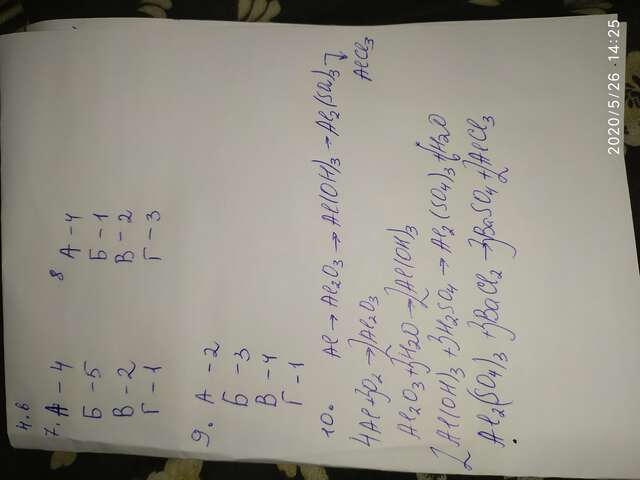 4. в
7. А - 4
Б - 5
В - 2
Г - 1
8 А - 4
Б - 1
В - 2
Г - 3
9. А - 2
Б - 3
В - 4
Г - 1
10. Al → Al₂O₃ → Al(OH)₃ → Al₂(SO₄)₃ →
AlCl₃
4Al + 3O₂ → 2Al₂O₃
Al₂O₃ + 3H₂O → 2Al(OH)₃
2Al(OH)₃ + 3H₂SO₄ → Al₂(SO₄)₃ + 6H₂O
Al₂(SO₄)₃ + 3BaCl₂ → 3BaSO₄ + 2AlCl₃
2020/5/26 14:25